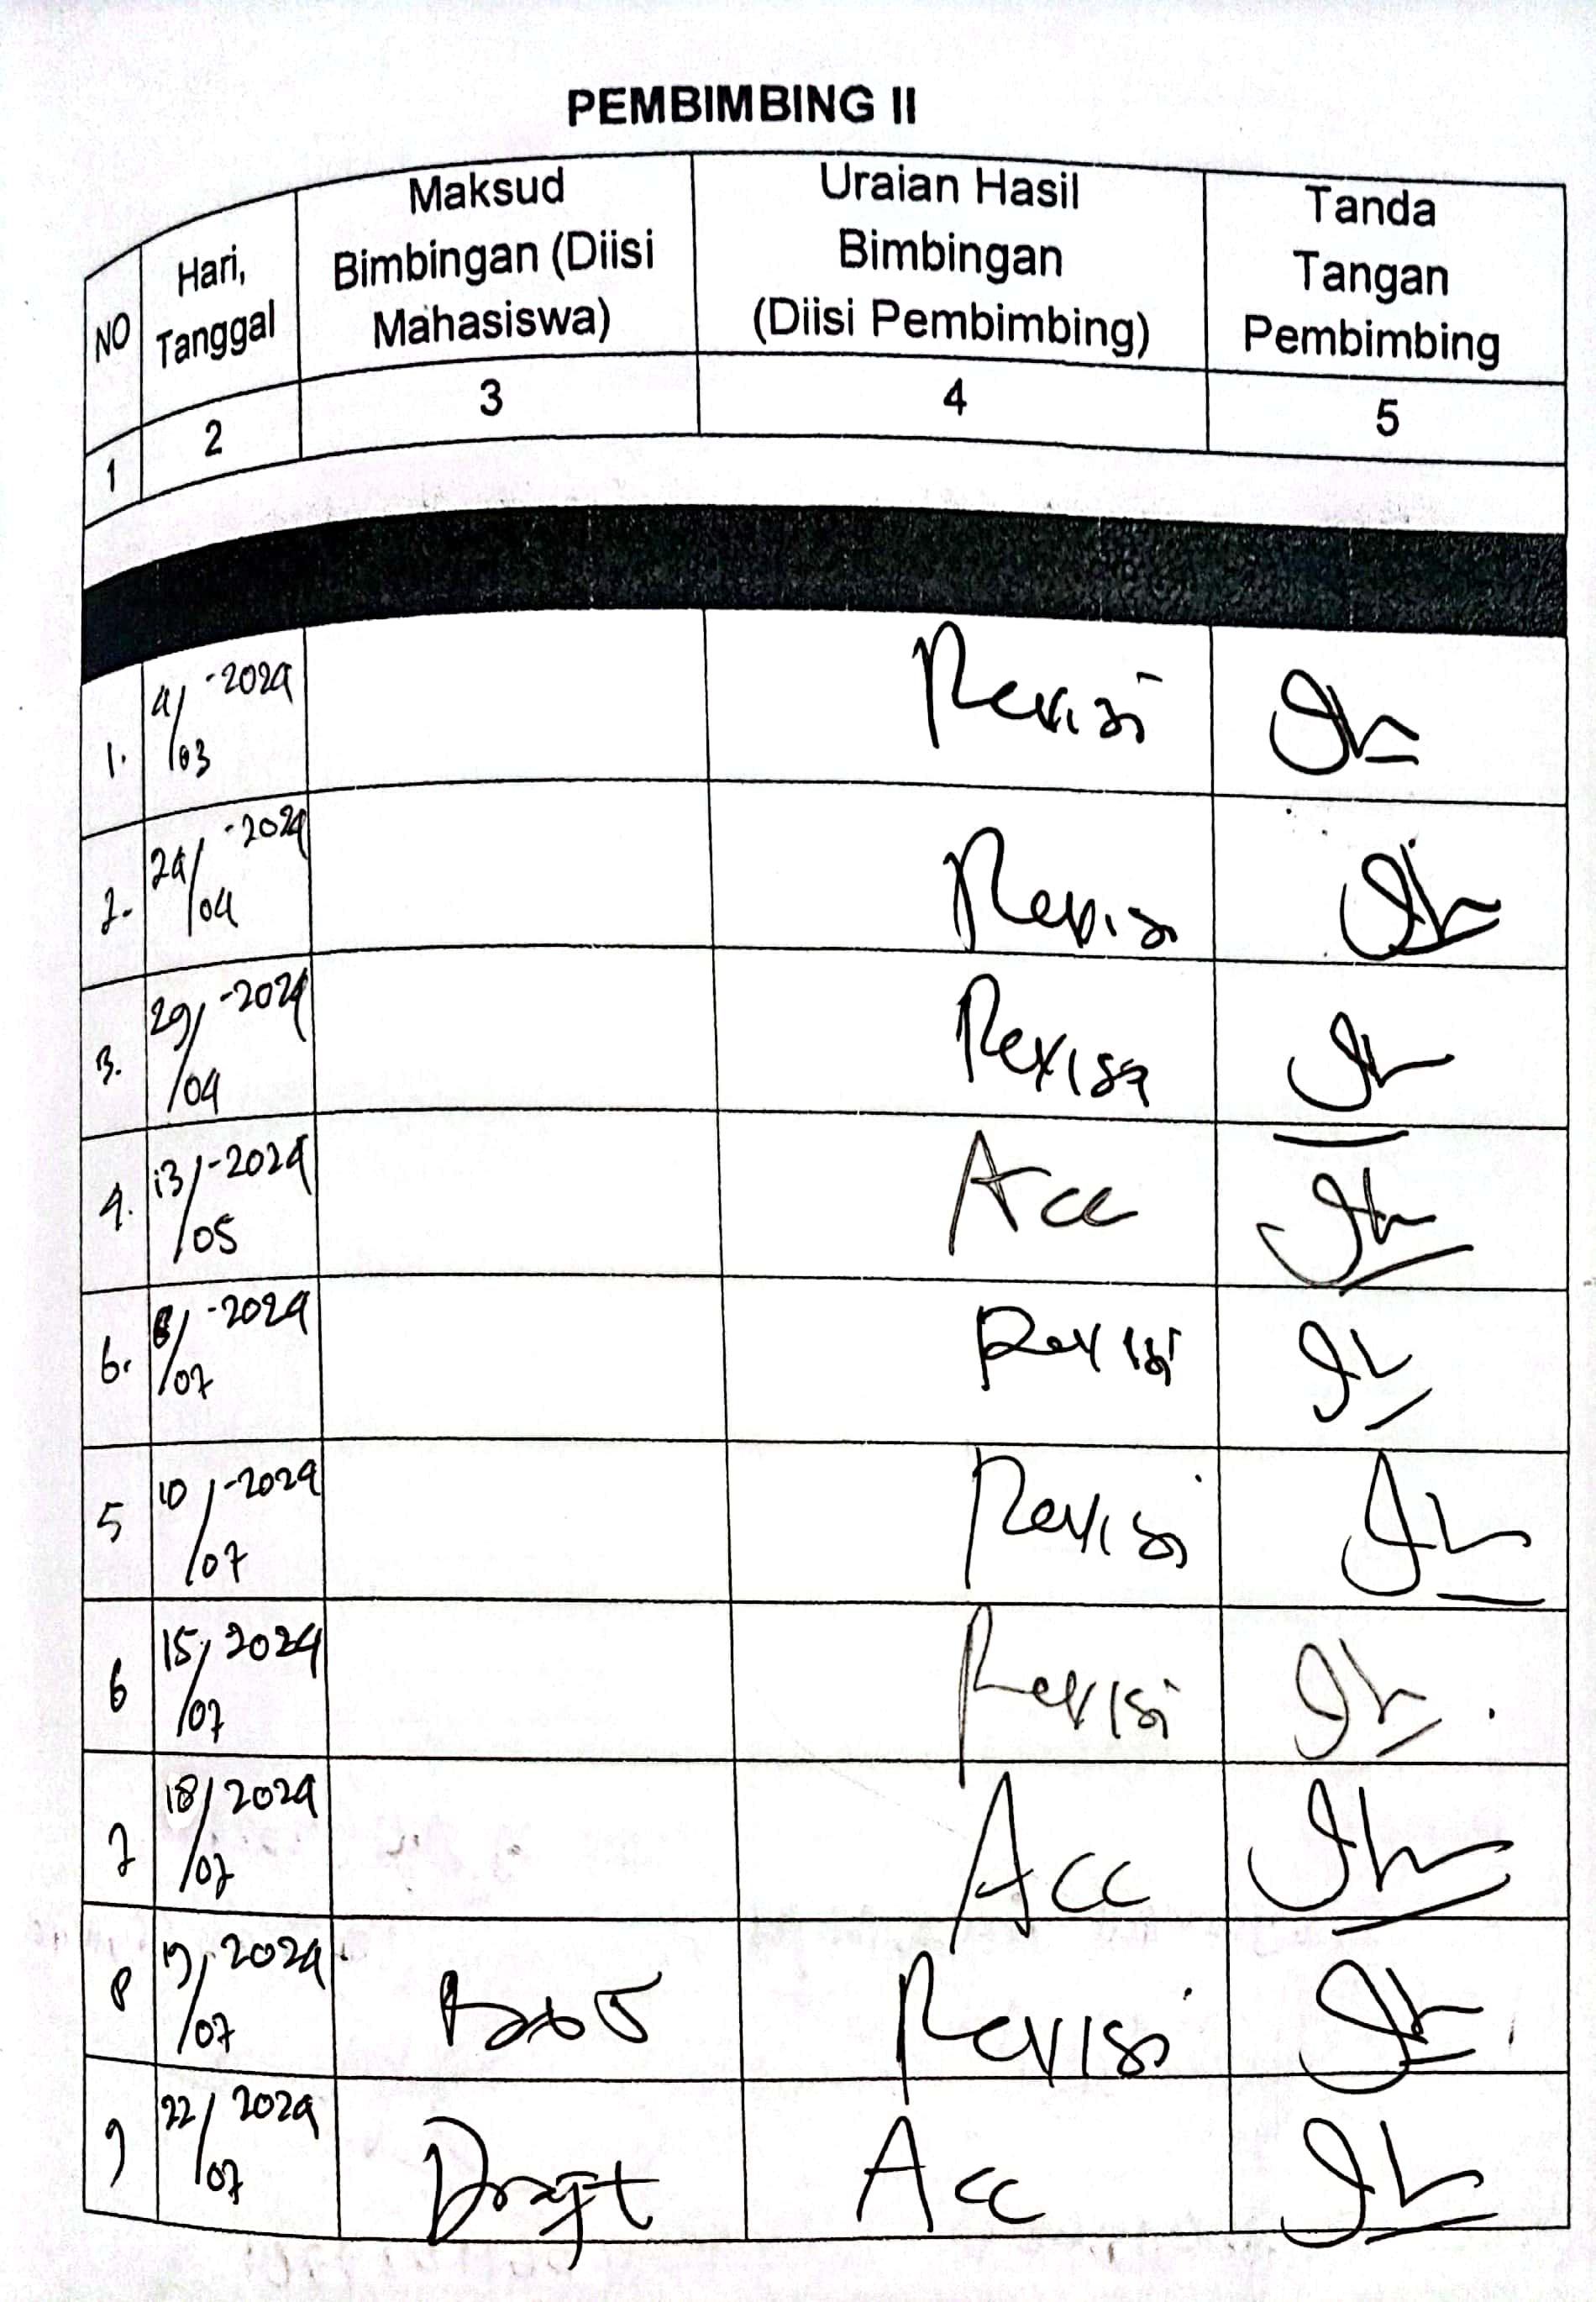 PEMBIMBING II
NO
Hari,
Tanggal
Maksud
Bimbingan (Diisi
Mahasiswa)
Uraian Hasil
Bimbingan
(Diisi Pembimbing)
Tanda
Tangan
Pembimbing
1 2 3 4 5
1. 4/03 -2024 Revisi
2. 24/04 -2024 Revisi
3. 29/04 -2024 Revisi
4. 13/05 -2024 Acc
6. 8/07 -2024 Revisi
5 10/07 -2024 Revisi
6 15/07 2024 Revisi
7 18/07 2024 Acc
8 19/07 2024 Bab 5 Revisi
9 22/07 2024 Draft Acc